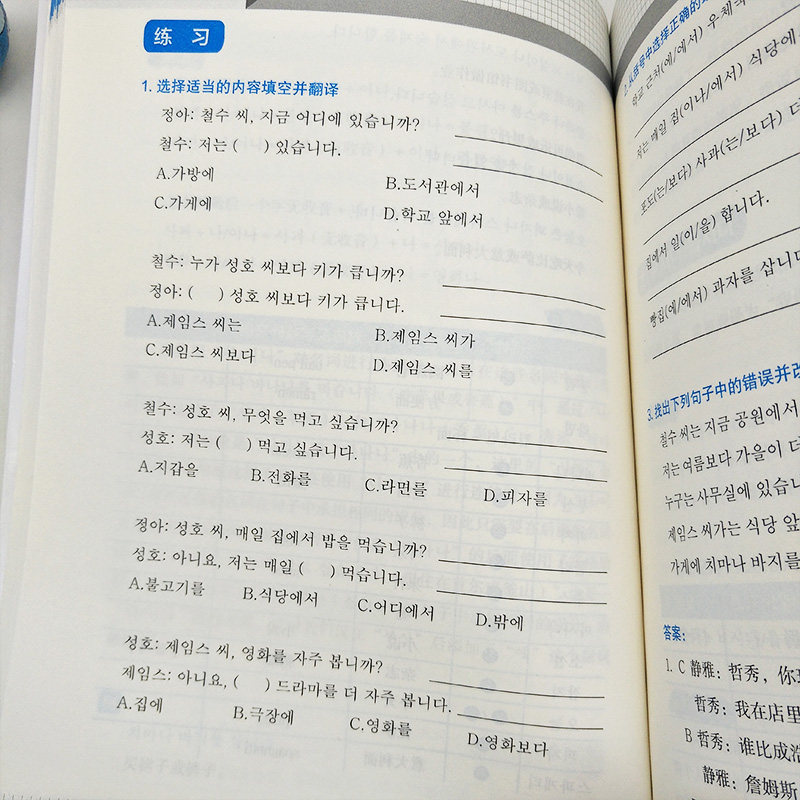 练 习
1. 选择适当的内容填空并翻译
정아: 철수 씨, 지금 어디에 있습니까?
철수: 저는 ( ) 있습니다.
A.가방에 B.도서관에서
C.가게에 D.학교 앞에서
철수: 누가 성호 씨보다 키가 큽니까?
정아: ( ) 성호 씨보다 키가 큽니다.
A.제임스 씨는 B.제임스 씨가
C.제임스 씨보다 D.제임스 씨를
철수: 성호 씨, 무엇을 먹고 싶습니까?
성호: 저는 ( ) 먹고 싶습니다.
A.지갑을 B.전화를 C.라면를 D.피자를
정아: 성호 씨, 매일 집에서 밥을 먹습니까?
성호: 아니요, 저는 매일 ( ) 먹습니다.
A.불고기를 B.식당에서 C.어디에서 D.밖에
성호: 제임스 씨, 영화를 자주 봅니까?
제임스: 아니요, ( ) 드라마를 더 자주 봅니다.
A.집에 B.극장에 C.영화를 D.영화보다
2. 从括号中选择正确的
학교 근처(에/에서) 우체국
저는 매일 집(이나/에서) 식당에
포도(는/보다) 사과(는/보다) 더
집에서 일(이/을) 합니다.
빵집(에/에서) 과자를 삽니다
3. 找出下列句子中的错误并改
철수 씨는 지금 공원에서
저는 여름보다 가을이 더
누구는 사무실에 있습니
제임스 씨가는 식당 앞
가게에 치마나 바지를
答案:
1. C 静雅: 哲秀, 你现
哲秀: 我在店里
B 哲秀: 谁比成浩
静雅: 詹姆斯